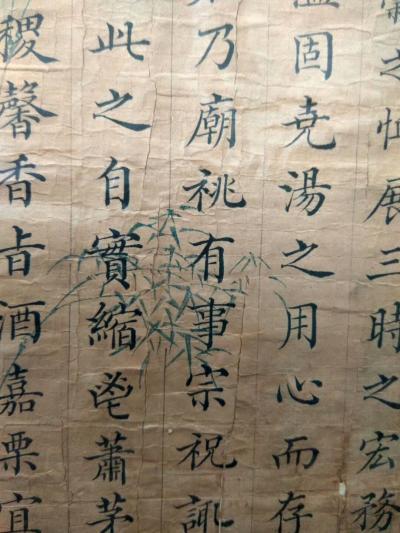 之恤展三時之宏務
固堯湯之用心而存
乃廟祧有事宗祝諏
此之自實縮鬯蕭茅
稷馨香旨酒嘉栗宜